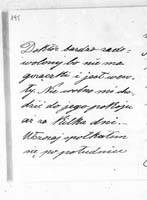 195
Doktór bardzo zado-
wolony bo nie ma
gorączki i jest weso-
ły. Nie wolno mi cho-
dzić do jego pokoju
aż za kilka dni.-
Wczoraj spotkałam
po południu